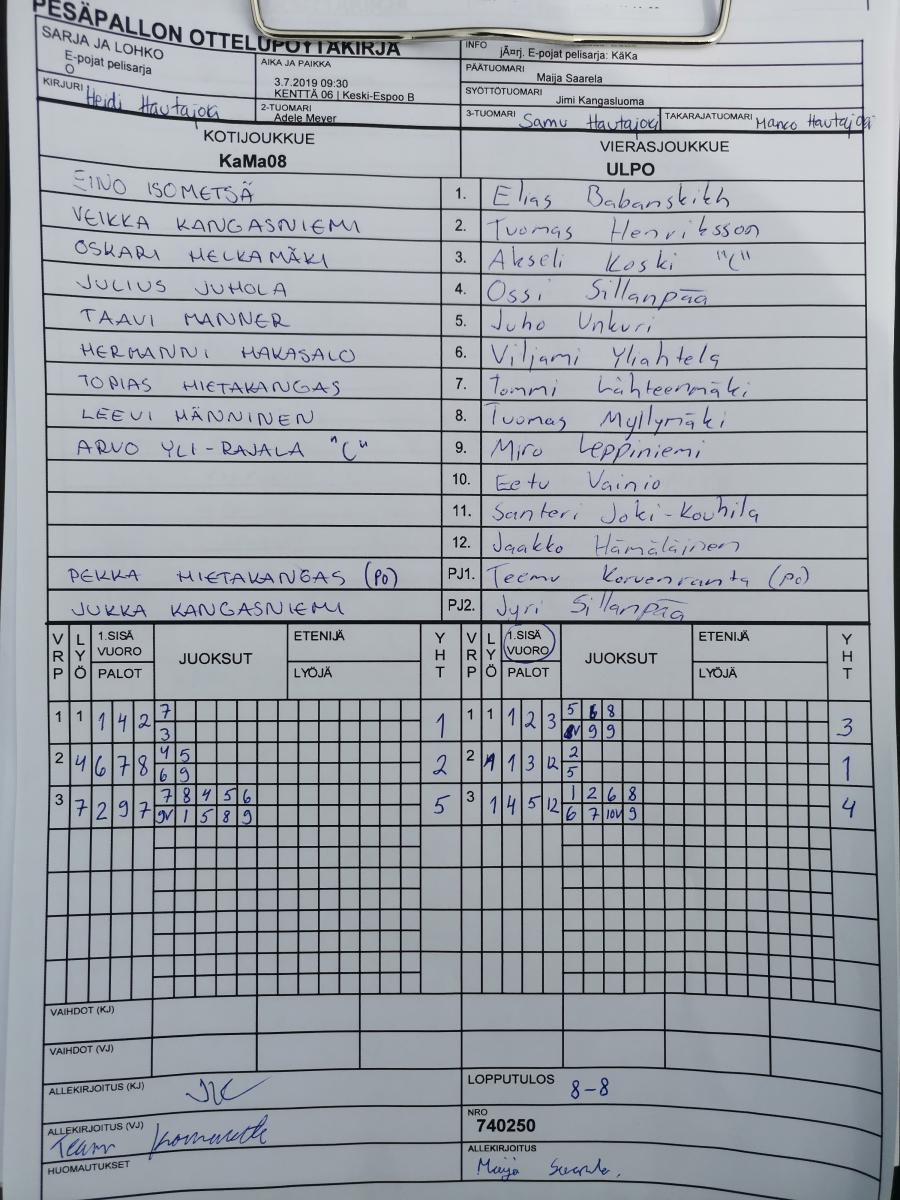 PESÄPALLON OTTELUPÖYTÄKIRJA
SARJA JA LOHKO
E-pojat pelisarja
O
AIKA JA PAIKKA
3.7.2019 09:30
KENTTÄ 06 | Keski-Espoo B
INFO
jÃ¤rj. E-pojat pelisarja: KäKa
PÄÄTUOMARI
Maija Saarela
SYÖTTÖTUOMARI
Jimi Kangasluoma
KIRJURI Heidi Hautajoki
2-TUOMARI
Adele Meyer
3-TUOMARI Samu Hautajoki TAKARAJATUOMARI Marko Hautajoki
KOTIJOUKKUE VIERASJOUKKUE
KaMa08 ULPO
EINO ISOMETSÄ 1. Elias Babanskikh
VEIKKA KANGASNIEMI 2. Tuomas Henriksson
OSKARI HELKAMÄKI 3. Akseli Koski "C"
JULIUS JUHOLA 4. Ossi Sillanpää
TAAVI MANNER 5. Juho Unkuri
HERMANNI HAKASALO 6. Viljami Yliahtela
TOPIAS HIETAKANGAS 7. Tommi Lähteenmäki
LEEVI HÄNNINEN 8. Tuomas Myllymäki
ARVO YLI-RAJALA "C" 9. Miro Leppiniemi
10. Eetu Vainio
11. Santeri Joki-Kouhila
12. Jaakko Hämäläinen
PEKKA HIETAKANGAS (PO) PJ1. Teemu Korvenranta (PO)
JUKKA KANGASNIEMI PJ2. Jyri Sillanpää
VRP LYÖ 1.SISÄ VUORO PALOT JUOKSUT ETENIJÄ LYÖJÄ YHT VRP LYÖ 1.SISÄ VUORO PALOT JUOKSUT ETENIJÄ LYÖJÄ YHT
1 1 1 4 2 7 1 1 1 1 2 3 5 6 8 3
3 9 9
2 4 6 7 8 4 5 2 2 1 3 12 2 1
6 9 5
3 7 2 9 7 7 8 4 5 6 5 3 1 4 5 12 1 2 6 8 4
9V 1 5 8 9 6 7 10V 9
VAIHDOT (KJ)
VAIHDOT (VJ)
ALLEKIRJOITUS (KJ) JK
LOPPUTULOS
8-8
ALLEKIRJOITUS (VJ)
Teemu Korvenranta
NRO
740250
HUOMAUTUKSET
ALLEKIRJOITUS
Maija Saarela